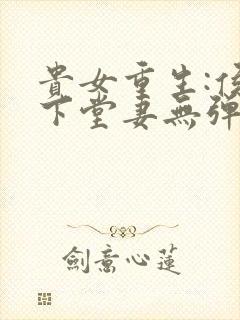 貴女重生:侯
下堂妻無彈
劍意心蓮